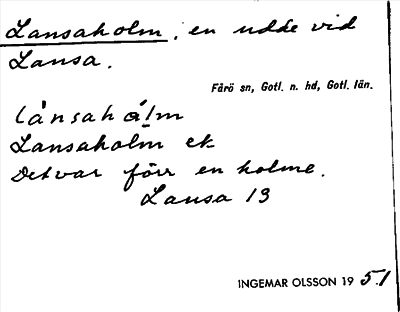 Lansaholm, en udde vid
Lansa.
Fårö sn, Gotl. n. hd, Gotl. län.
lånsahålm
Lansaholm ek
Det var förr en holme.
Lansa 13
INGEMAR OLSSON 19 51